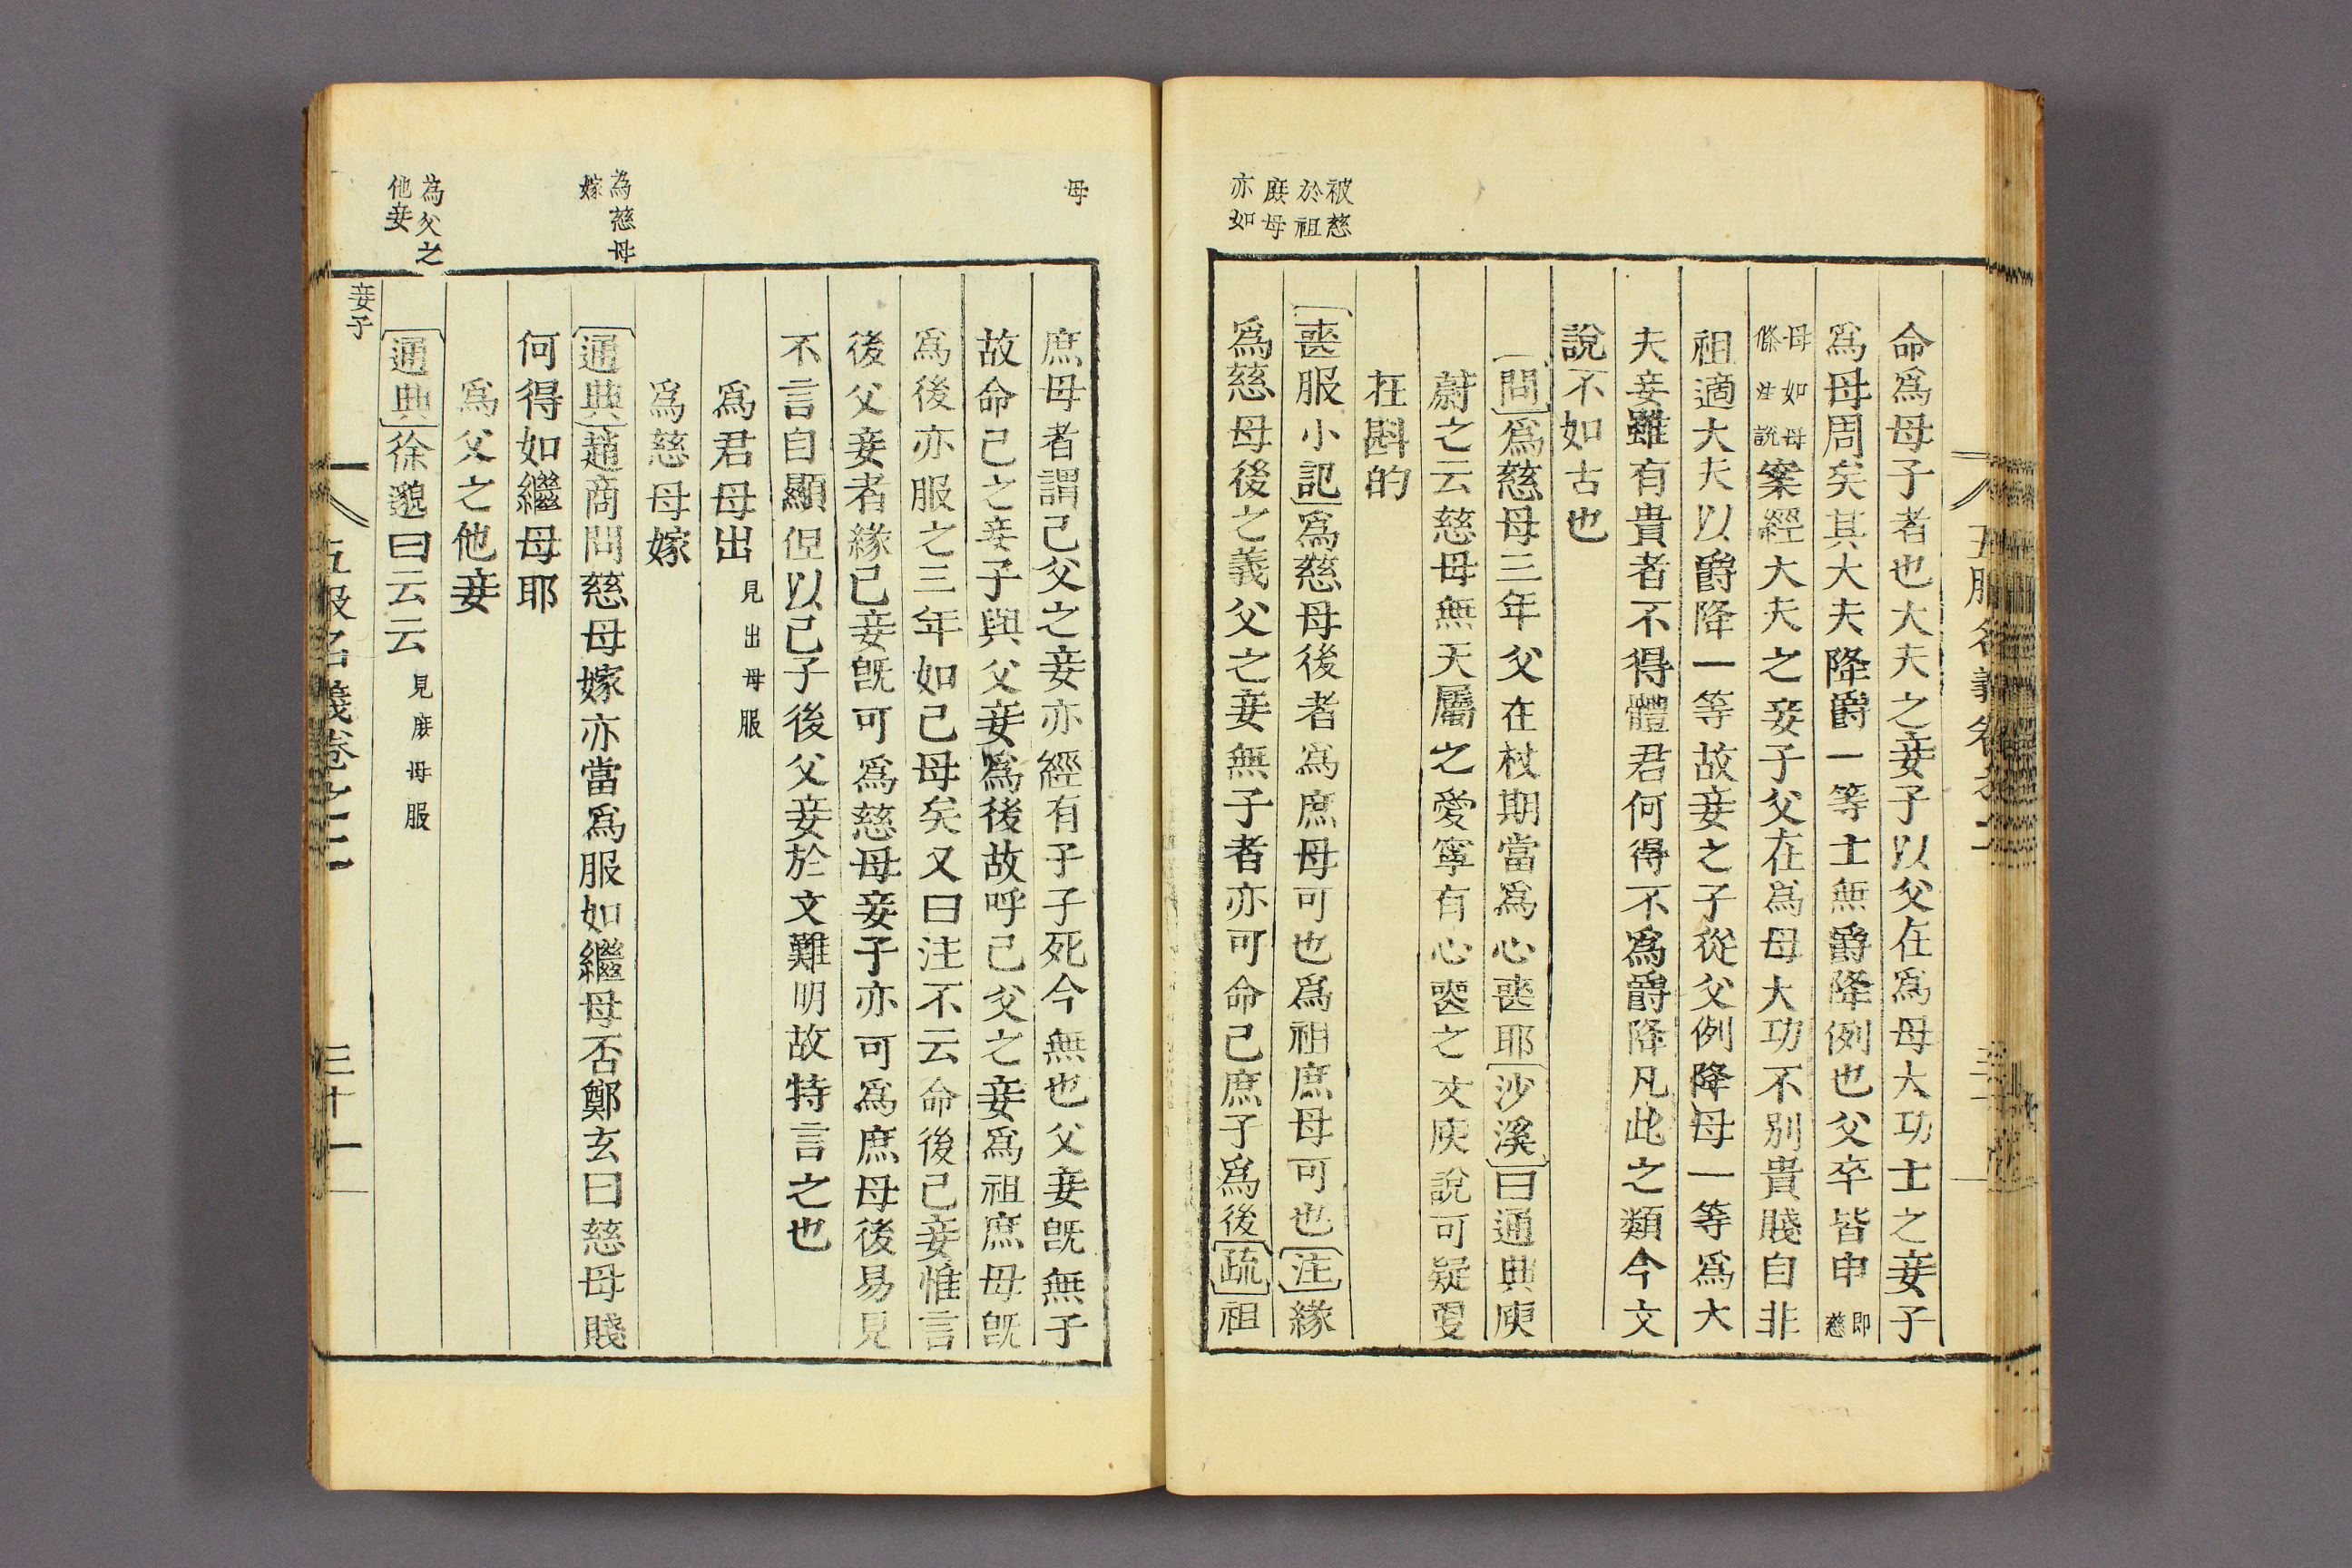 被慈
於祖
庶母
亦如
命爲母子者也大夫之妾子以父在爲母大功士之妾子
爲母周矣其大夫降爵一等士無爵降例也父卒皆申即慈
母如母條注說案經大夫之妾子父在爲母大功不別貴賤自非
祖適大夫以爵降一等故妾之子從父例降母一等爲大
夫妾雖有貴者不得體君何得不爲爵降凡此之類今文
說不如古也
問爲慈母三年父在杖期當爲心喪耶沙溪曰通典庾
蔚之云慈母無天屬之愛寧有心喪之文庾說可疑更
在斟的
喪服小記爲慈母後者爲庶母可也爲祖庶母可也注緣
爲慈母後之義父之妾無子者亦可命己庶子爲後疏祖
母
庶母者謂己父之妾亦經有子子死今無也父妾旣無子
故命己之妾子與父妾爲後故呼己父之妾爲祖庶母旣
爲後亦服之三年如己母矣又曰注不云命後己妾惟言
後父妾者緣己妾旣可爲慈母妾子亦可爲庶母後易見
不言自顯但以己子後父妾於文難明故特言之也
爲君母出見出母服
為慈母
嫁
爲慈母嫁
通典趙商問慈母嫁亦當爲服如繼母否鄭玄曰慈母賤
何得如繼母耶
為父之
他妾
爲父之他妾
通典徐邈曰云云見庶母服
妾子
五服名義卷之二
三十一